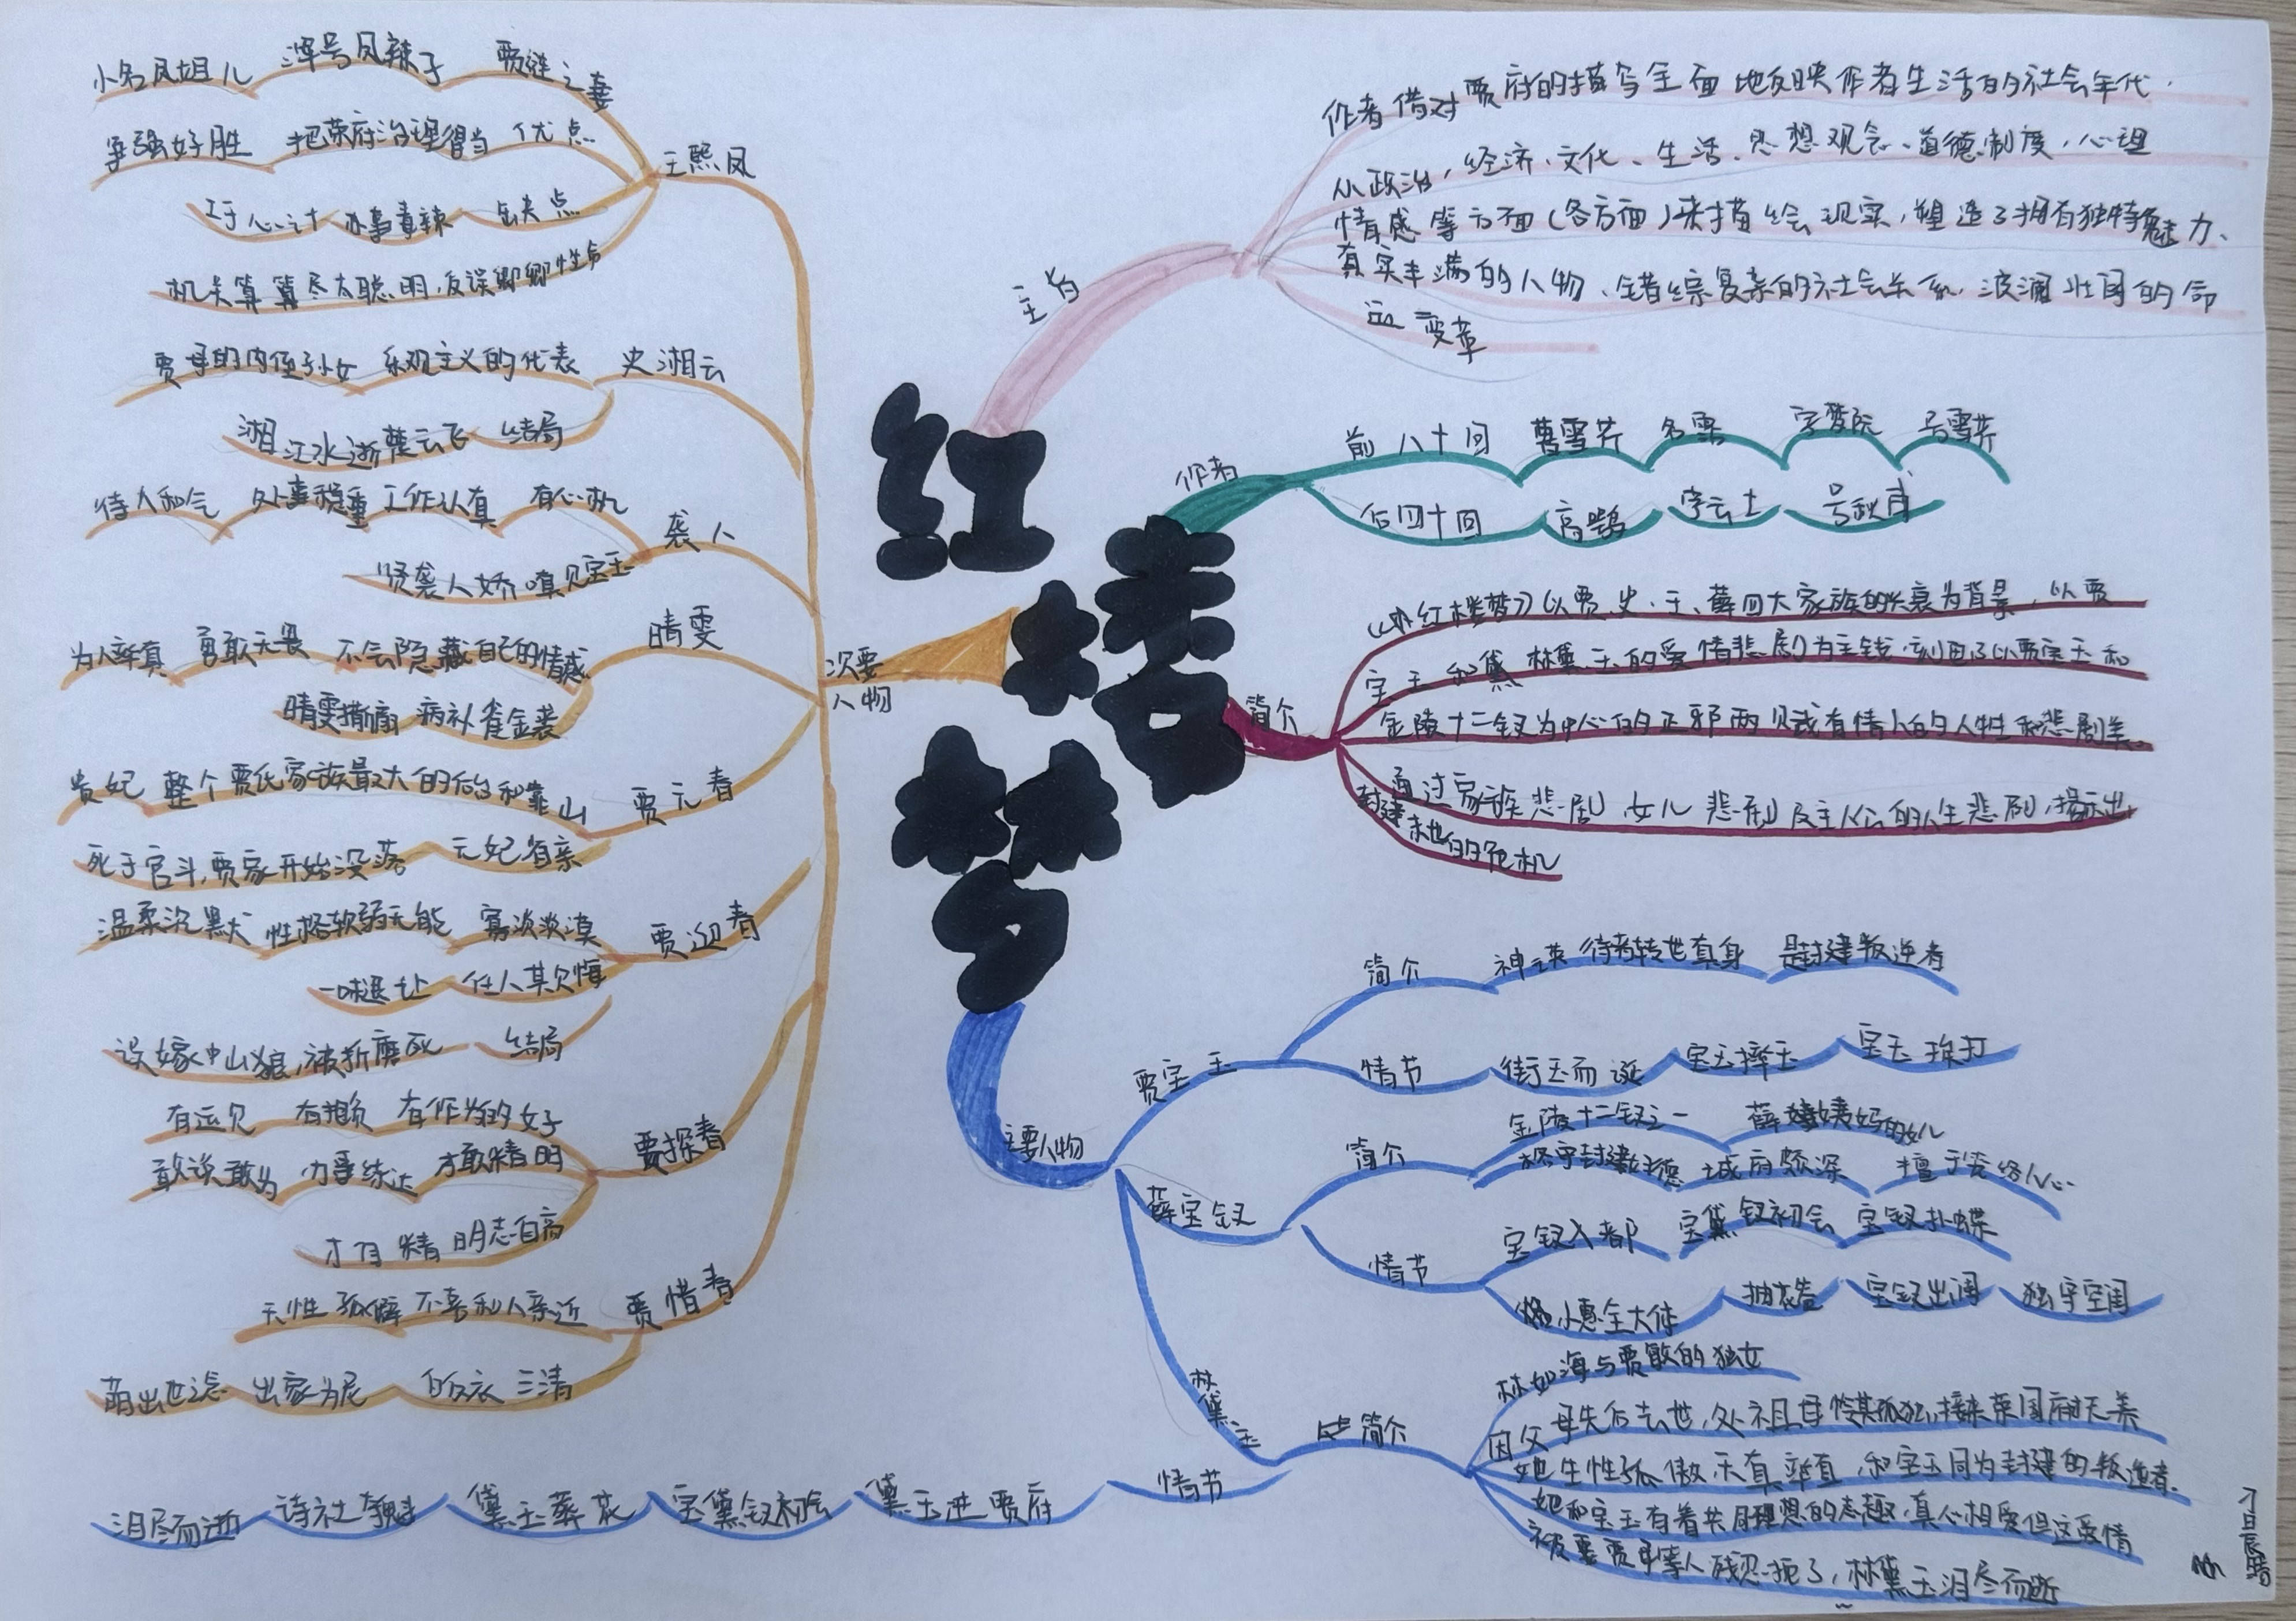 红楼梦
主旨
作者借对贾府的描写全面地反映作者生活的社会年代.
从政治,经济、文化、生活、思想观念、道德制度,心理
情感等方面(各方面)来描绘现实,塑造了拥有独特魅力、
真实丰满的人物、错综复杂的社会关系,波澜壮阔的命
运变革
作者
前八十回 曹雪芹 名霑 字梦阮 号雪芹
后四十回 高鹗 字云士 号秋甫
简介
《红楼梦》以贾、史、王、薛四大家族的兴衰为背景,以贾
宝玉和 林黛玉的爱情悲剧为主线,刻画了以贾宝玉和
金陵十二钗为中心的正邪两赋有情人的人性和悲剧美。
通过家族悲剧、女儿悲剧及主人公的人生悲剧,揭示出
封建末世的危机
主要人物
贾宝玉
简介 神瑛侍者转世真身 是封建叛逆者
情节 衔玉而诞 宝玉摔玉 宝玉挨打
薛宝钗
简介
金陵十二钗之一 薛姨妈的女儿
恪守封建妇德 城府颇深 擅于笼络人心
情节
宝钗入都 宝黛钗初会 宝钗扑蝶
小惠全大体 抽花签 宝钗出闺 独守空闺
林黛玉
简介
林如海与贾敏的独女
因父母先后去世,外祖母怜其孤独,接来荣国府抚养
她生性孤傲,天真率直,和宝玉同为封建的叛逆者.
她和宝玉有着共同理想的志趣,真心相爱但这爱情
被贾母等人残忍扼了,林黛玉泪尽而逝
情节
黛玉进贾府 宝黛钗初会 黛玉葬花 诗社夺魁 泪尽而逝
次要
人物
王熙凤
贾琏之妻 浑号凤辣子 小名凤姐儿
优点 把荣府治理得当 争强好胜
缺点 办事毒辣 工于心计
机关算算尽太聪明,反误卿卿性命
史湘云
乐观主义的代表 贾母的内侄孙女
结局 湘江水逝楚云飞
袭人
有心机 工作认真 处事稳重 待人和气
贤袭人娇嗔见宝玉
晴雯
不会隐藏自己的情感 勇敢无畏 为人率真
病补雀金裘 晴雯撕扇
贾元春
整个贾氏家族最大的后台和靠山 贵妃
元妃省亲 死于宫斗,贾家开始没落
贾迎春
寡淡淡漠 性格软弱无能 温柔沉默
任人欺侮 一味退让
结局 误嫁中山狼,被折磨死
贾探春
有作为的女子 有抱负 有远见
才敢精明 办事练达 敢说敢为
才自精明志自高
贾惜春
不喜和人亲近 天性孤僻
三清 出家为尼 萌出世之念